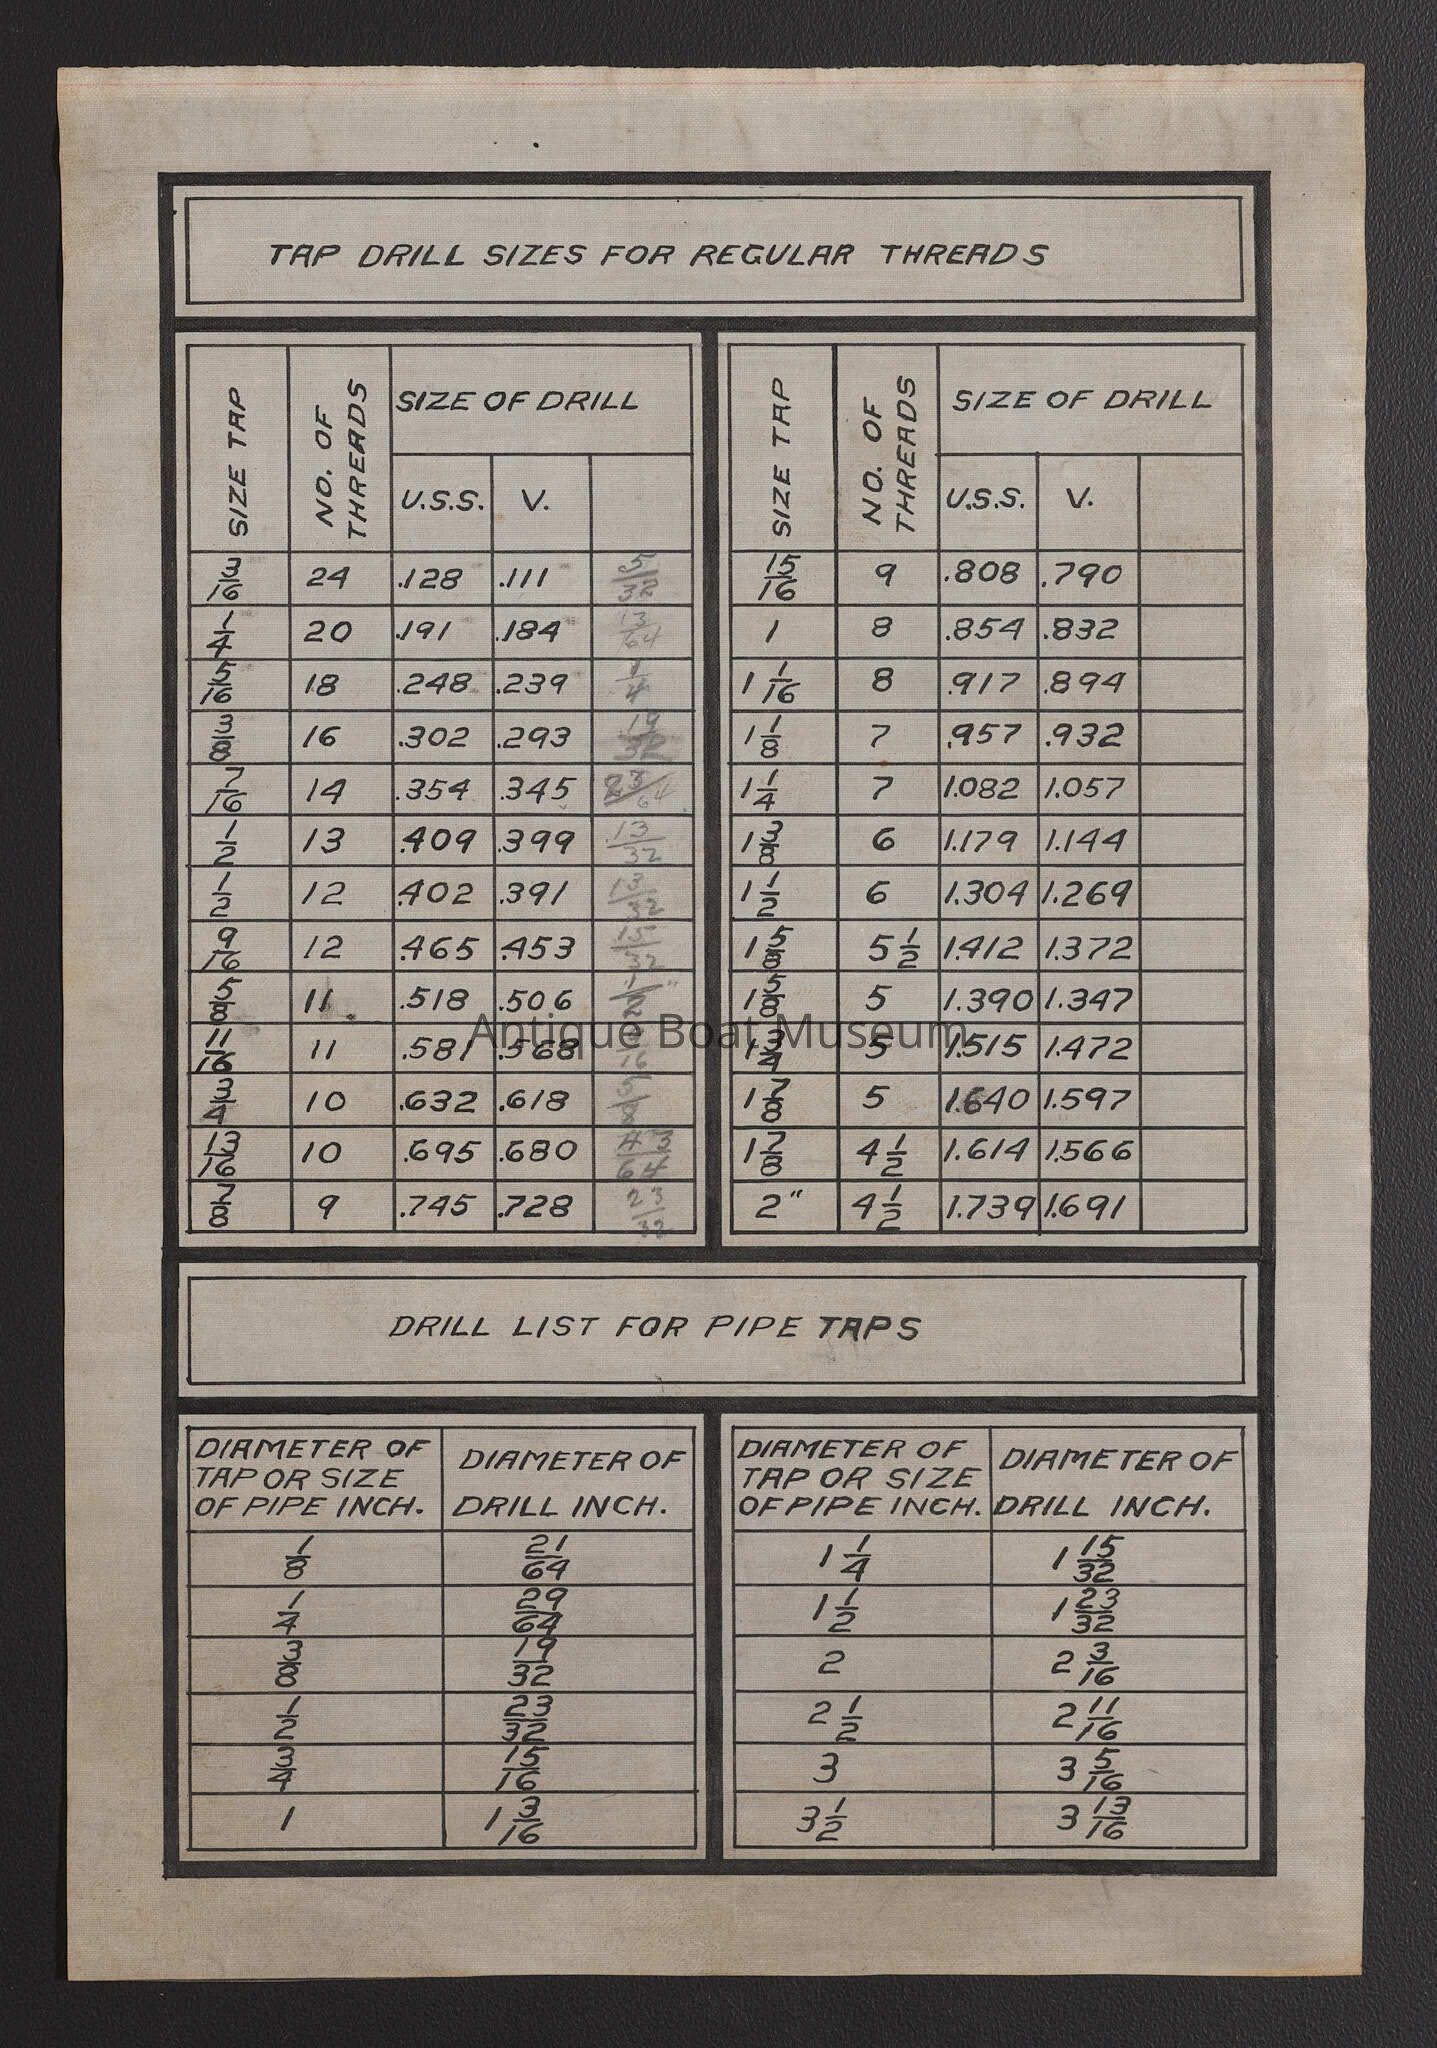 TAP DRILL SIZES FOR REGULAR THREADS
SIZE TAP NO. OF THREADS SIZE OF DRILL
U.S.S. V.
3/16 24 .128 .111 5/32
1/4 20 .191 .184 13/64
5/16 18 .248 .239 1/4
3/8 16 .302 .293 19/32
7/16 14 .354 .345 23/64
1/2 13 .409 .399 13/32
1/2 12 .402 .391 13/32
9/16 12 .465 .453 15/32
5/8 11 .518 .506 1/2"
11/16 11 .581 .568
3/4 10 .632 .618 5/8
13/16 10 .695 .680 43/64
7/8 9 .745 .728 23/32
SIZE TAP NO. OF THREADS SIZE OF DRILL
U.S.S. V.
15/16 9 .808 .790
1 8 .854 .832
1 1/16 8 .917 .894
1 1/8 7 .957 .932
1 1/4 7 1.082 1.057
1 3/8 6 1.179 1.144
1 1/2 6 1.304 1.269
1 5/8 5 1/2 1.412 1.372
1 5/8 5 1.390 1.347
1 3/4 5 1.515 1.472
1 7/8 5 1.640 1.597
1 7/8 4 1/2 1.614 1.566
2" 4 1/2 1.739 1.691
Antique Boat Museum
DRILL LIST FOR PIPE TAPS
DIAMETER OF TAP OR SIZE OF PIPE INCH. DIAMETER OF DRILL INCH.
1/8 21/64
1/4 29/64
3/8 19/32
1/2 23/32
3/4 15/16
1 1 3/16
DIAMETER OF TAP OR SIZE OF PIPE INCH. DIAMETER OF DRILL INCH.
1 1/4 1 15/32
1 1/2 1 23/32
2 2 3/16
2 1/2 2 11/16
3 3 5/16
3 1/2 3 13/16